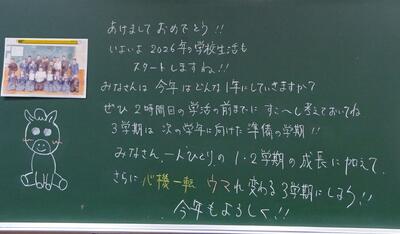 あけまして おめでとう!!
いよいよ 2026年の学校生活も
スタートしますね!!
みなさんは 今年は どんな 1年にしていきますか?
ぜひ 2時間目の学活の前までに すこーし考えておいてね
3学期は 次の学年に向けた 準備の学期!!
みなさん、一人ひとりの 1・2学期の 成長に加えて、
さらに 心機一転 ウマれ変わる 3学期にしよう!!
今年もよろしく!!